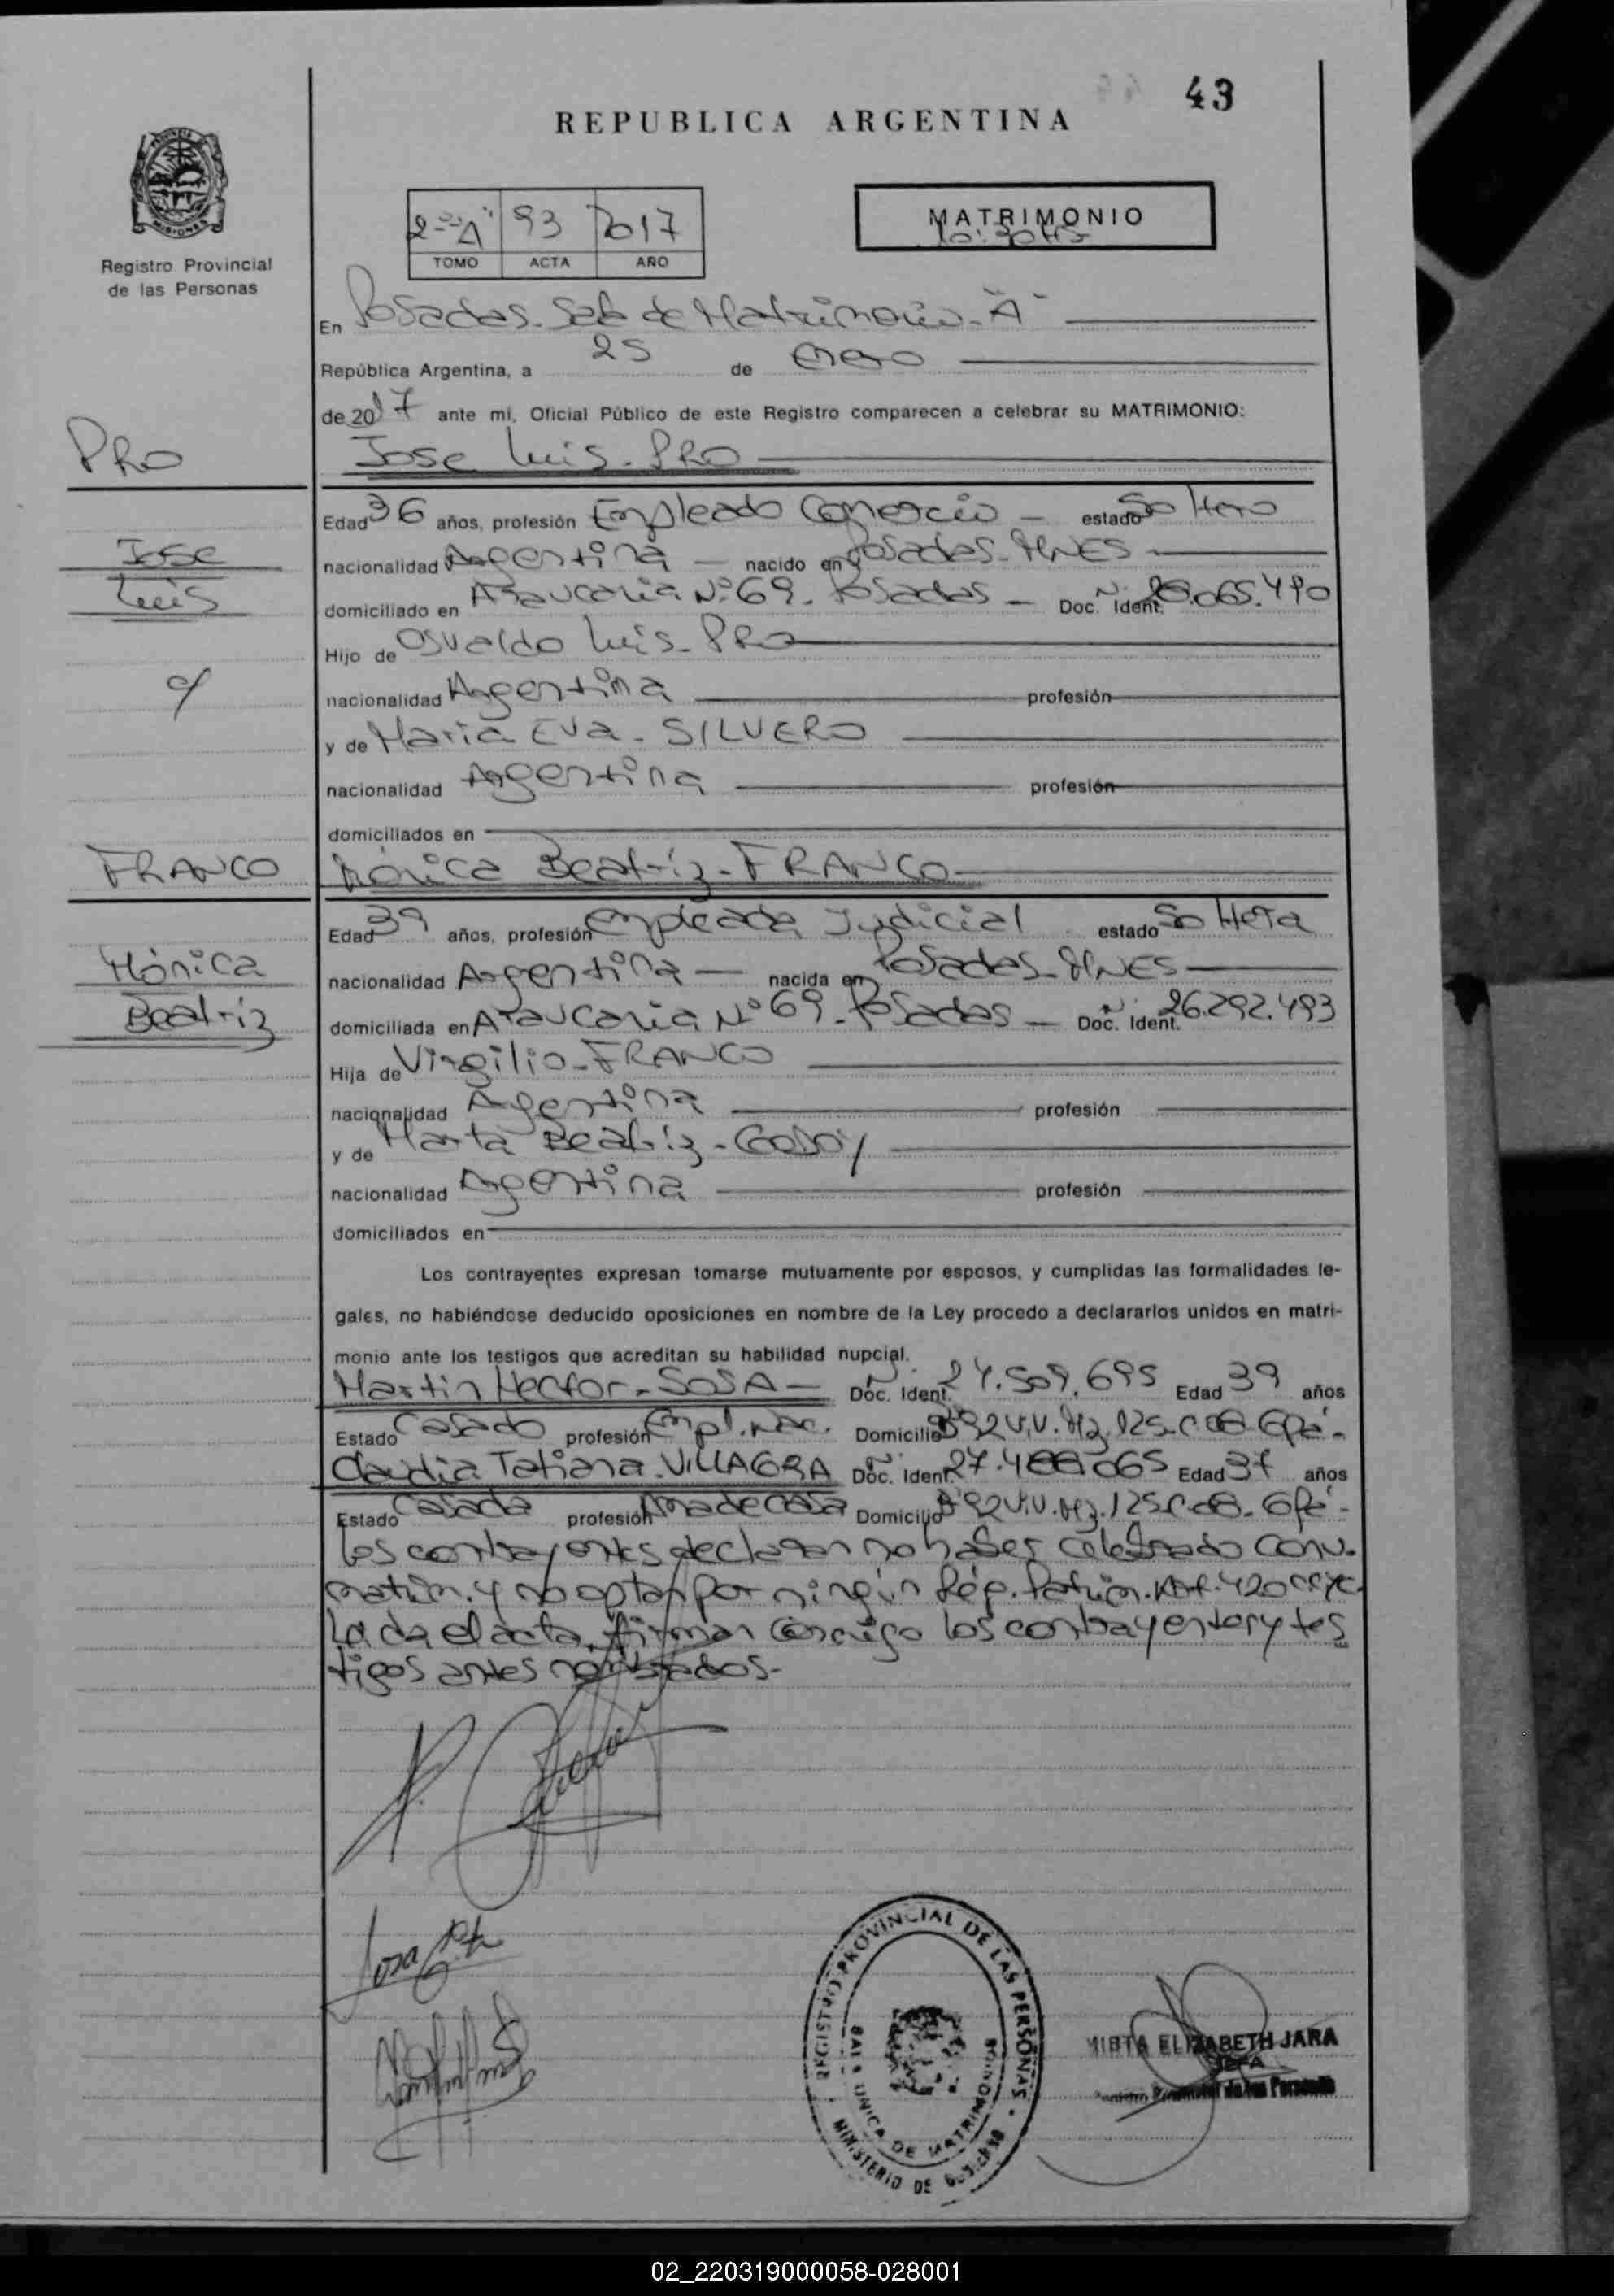 43
REPUBLICA ARGENTINA
2º "A" 93 2017
TOMO ACTA AÑO
MATRIMONIO
10:30 HS
MISIONES
Registro Provincial
de las Personas
En Posadas. Sala de Matrimonio. "A"
República Argentina, a 25 de Enero
de 2017 ante mí, Oficial Público de este Registro comparecen a celebrar su MATRIMONIO:
PRO
Jose Luis. PRO
Edad 36 años, profesión Empleado Comercio estado Soltero
Jose
nacionalidad Argentina nacido en Posadas. MNES
Luis
domiciliado en Araucaria Nº 69. Posadas Doc. Ident. Nº 28.065.490
Hijo de Osvaldo Luis. PRO
c/
nacionalidad Argentina profesión
y de Maria Eva. SILVERO
nacionalidad Argentina profesión
domiciliados en
FRANCO
Mónica Beatriz. FRANCO
Edad 39 años, profesión Empleada Judicial estado Soltera
Mónica
nacionalidad Argentina nacida en Posadas. MNES
Beatriz
domiciliada en Araucaria Nº 69. Posadas Doc. Ident. Nº 26.292.493
Hija de Virgilio. FRANCO
nacionalidad Argentina profesión
y de Marta Beatriz. GODOY
nacionalidad Argentina profesión
domiciliados en
Los contrayentes expresan tomarse mutuamente por esposos, y cumplidas las formalidades le-
gales, no habiéndose deducido oposiciones en nombre de la Ley procedo a declararlos unidos en matri-
monio ante los testigos que acreditan su habilidad nupcial.
Martin Hector. SOSA Doc. Ident. 24.509.695 Edad 39 años
Estado Casado profesión Empl. Nac. Domicilio Bº 92 V.V. Mz. 125. Gpá.
Claudia Tatiana. VILLAGRA Doc. Ident. Edad 37 años
Estado Casada profesión Ama de casa Domicilio Bº 92 V.V. Mz. 125. Gpá.
Los contrayentes declaran no haber celebrado conv.
matrim. y no optan por ningún Rég. Patrim. Art. 420 CCyC
Leida el acta, firman conmigo los contrayentes y tes
tigos antes nombrados.
REGISTRO PROVINCIAL DE LAS PERSONAS
SALA UNICA DE MATRIMONIOS
MINISTERIO DE GOBIERNO
MIRTA ELIZABETH JARA
JEFA
Registro Provincial de las Personas
02_220319000058-028001